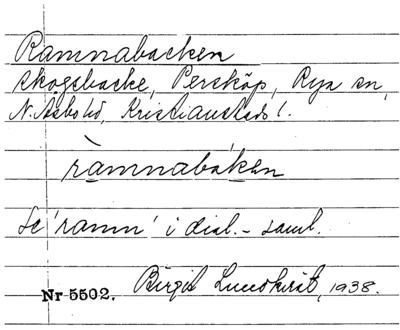 Ramnabacken
skogsbacke, Persköp, Rya sn,
N. Åsbo hd, Kristianstads l.
ràmnabáken
Se 'ramn' i dial.- saml.
Nr 5502. Birgit Lundkvist, 1938.